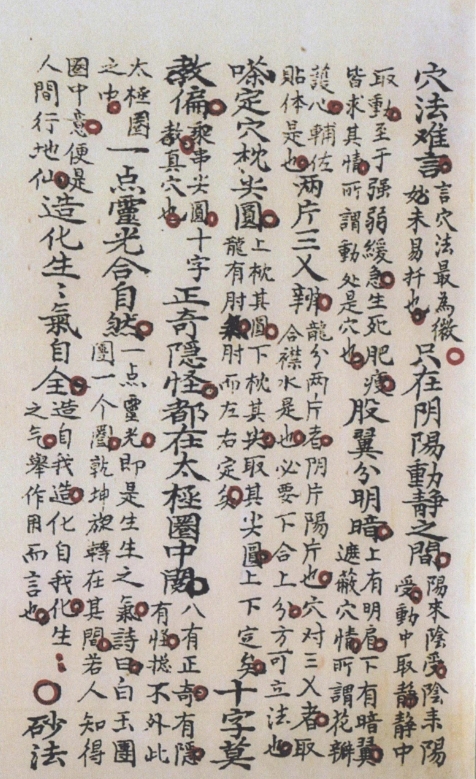 穴法难言
言穴法最為微
妙未易扦也
只在阴陽動静之間
陽來陰受陰耒陽
受動中取静静中
取動至于强弱緩急生死肥瘦
皆求其情所謂動处是穴也
股翼分明暗
上有明眉下有暗翼
遮蔽穴情所謂花瓣
護心輔佐
貼体是也
两片三乂辨
龍分两片者阴片陽片也穴对三乂者取
合襟水是也必要下合上分方可立法也
定穴枕尖圓
上枕其圓下枕其尖取其尖圓上下定矣
龍有肘肘而左右定矣
十字莫
教偏
尖圓十字
教真穴也
正奇隐怪都在太極圈中
八有正奇有隐
有怪揔不外此
太極圈
之中
一点靈光合自然
一点靈光即是生生之氣詩曰白玉團
團一个圈乾坤旋轉在其間若人知得
圈中意便是
人間行地仙
造化生〻氣自全
造自我造化自我化生〻
之气舉作用而言也
○砂法